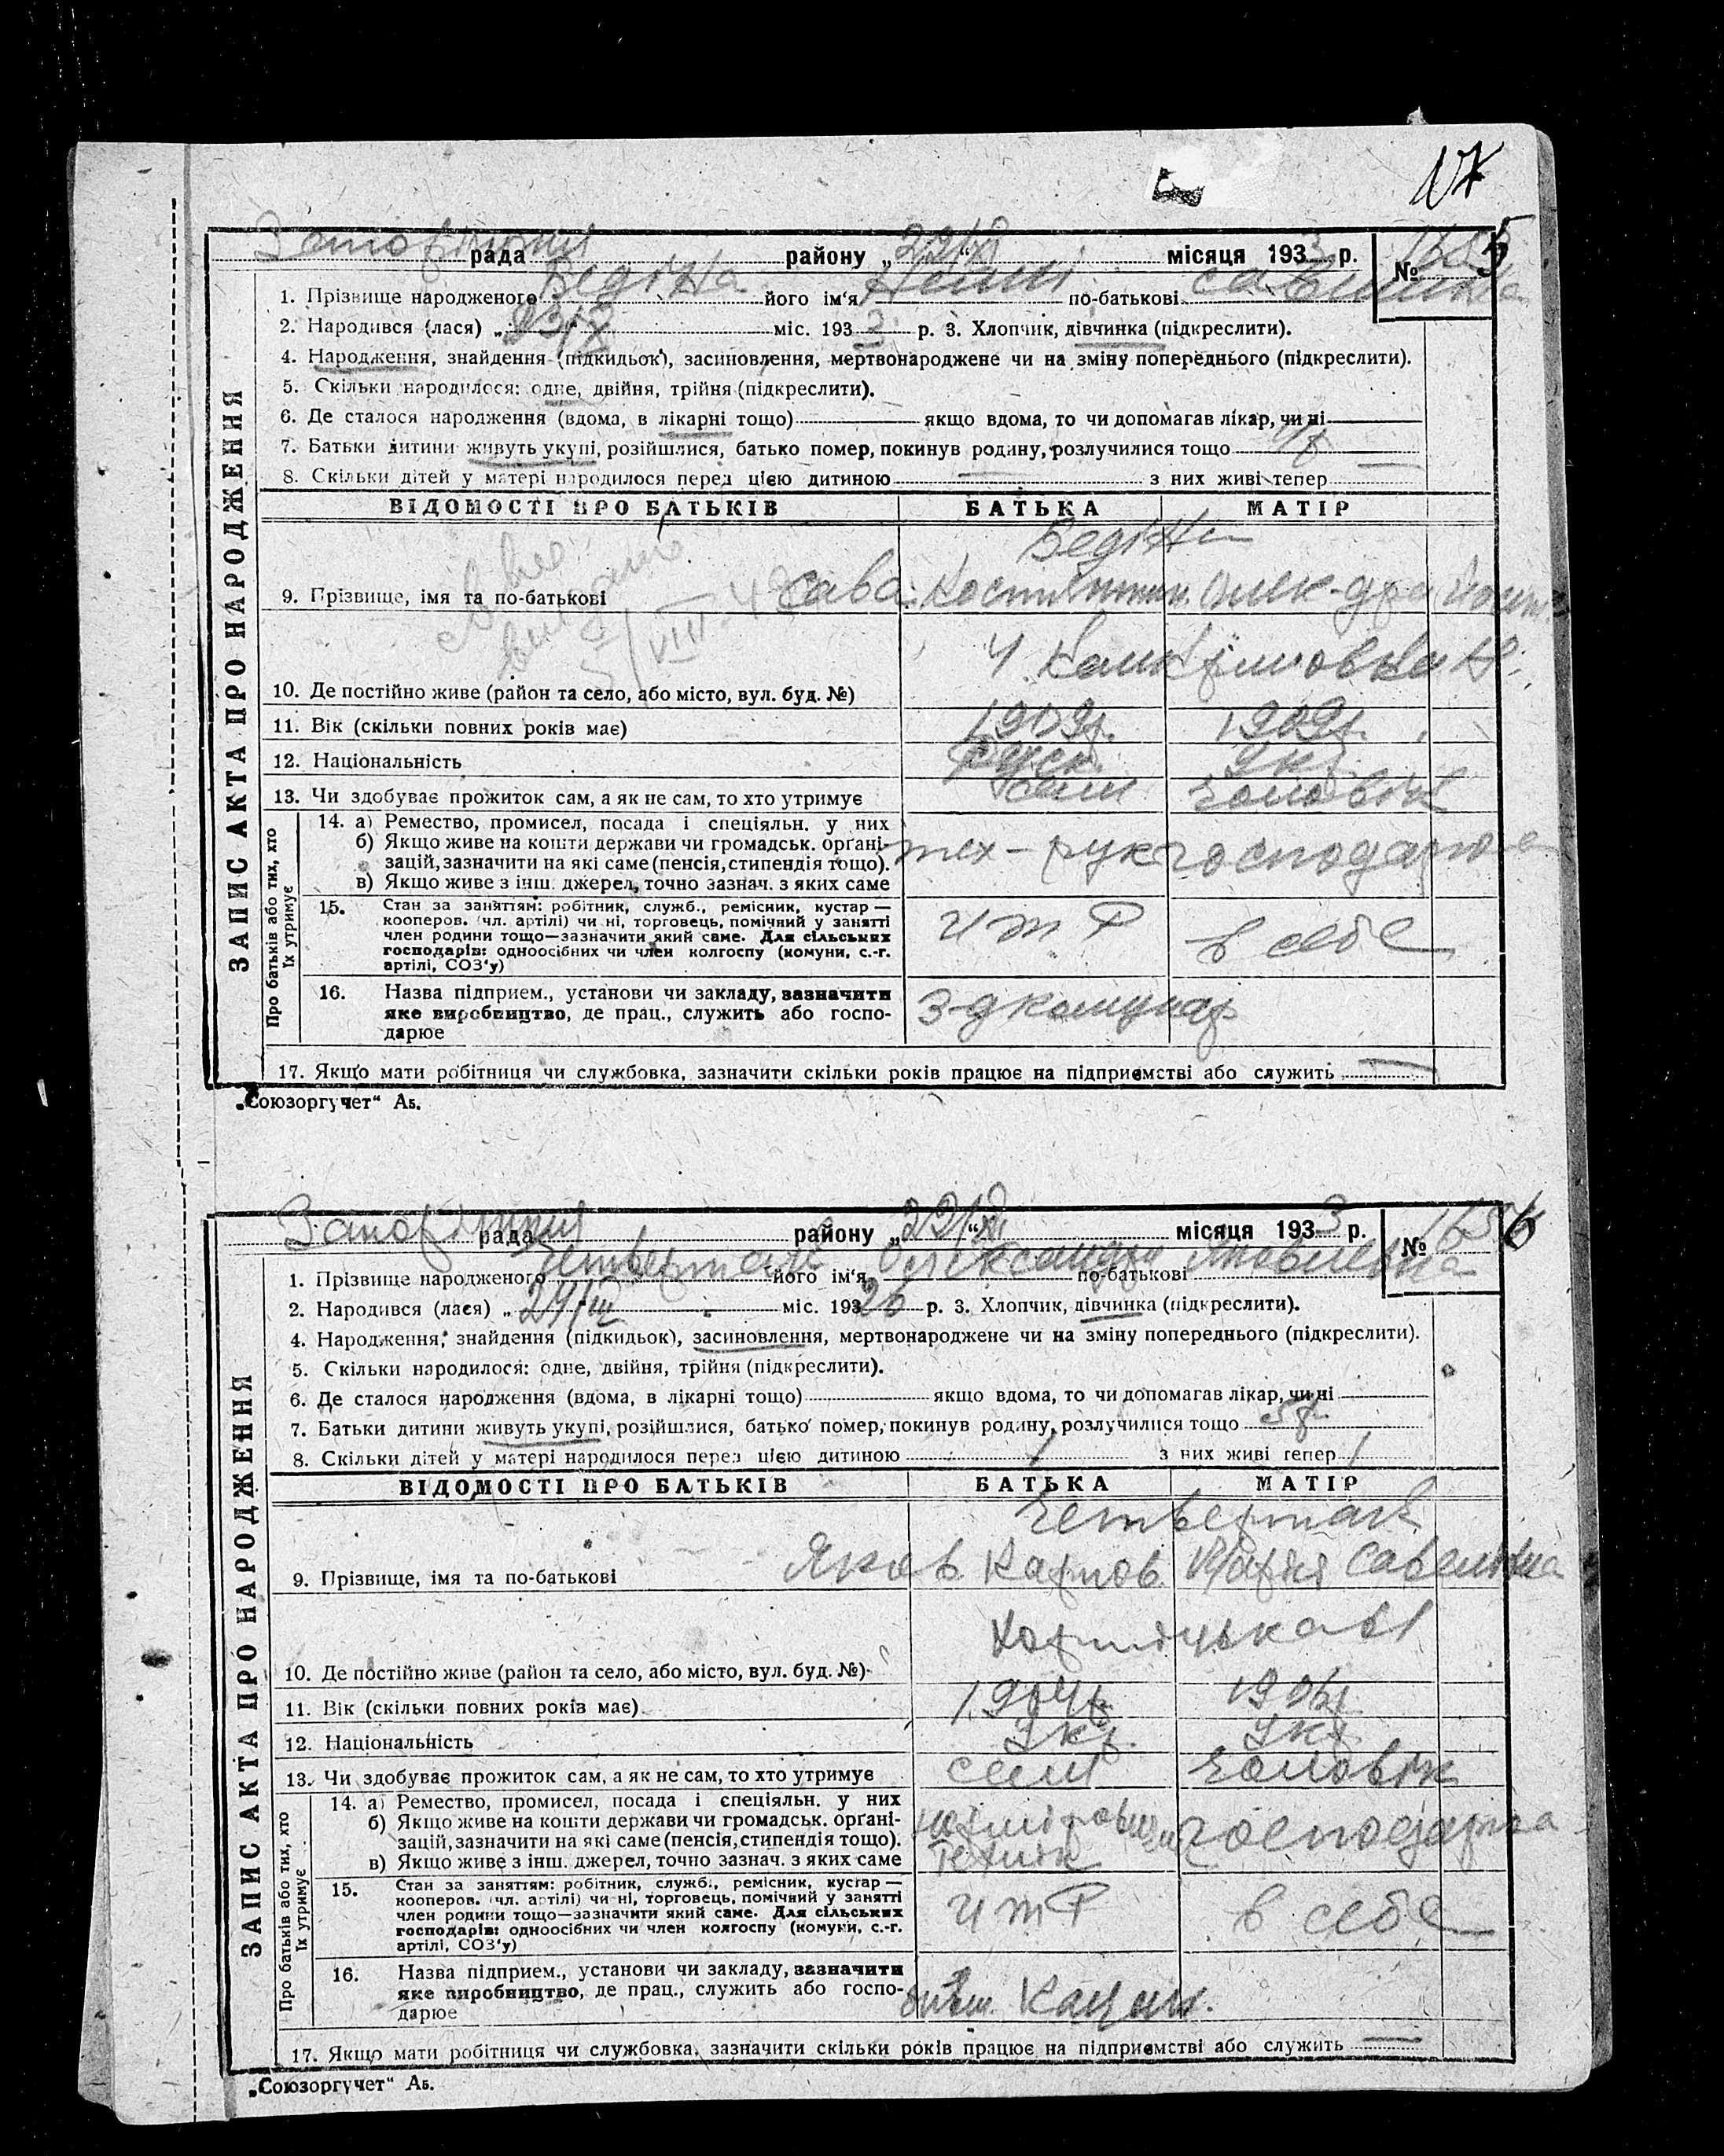 17
рада району „22/XI“ місяця 1933 р. №
1. Прізвище народженого Бедіна його ім'я по-батькові Савишна
2. Народився (лася) „23/X“ міс. 1933 р. 3. Хлопчик, дівчинка (підкреслити).
4. Народження, знайдення (підкидьок), засиновлення, мертвонароджене чи на зміну попереднього (підкреслити).
5. Скільки народилося: одне, двійня, трійня (підкреслити).
6. Де сталося народження (вдома, в лікарні тощо) якщо вдома, то чи допомагав лікар, чи ні
7. Батьки дитини живуть укупі, розійшлися, батько помер, покинув родину, розлучилися тощо
8. Скільки дітей у матері народилося перед цією дитиною — з них живі тепер —
ЗАПИС АКТА ПРО НАРОДЖЕННЯ
ВІДОМОСТІ ПРО БАТЬКІВ БАТЬКА МАТІР
Бедіна
9. Прізвище, імя та по-батькові Сава Костянтин.
10. Де постійно живе (район та село, або місто, вул. буд. №)
11. Вік (скільки повних років має) 1909р. 1909р.
12. Національність руск. Укр
13. Чи здобуває прожиток сам, а як не сам, то хто утримує сам чоловік
Про батьків або тих, хто їх утримує
14. а) Ремество, промисел, посада і спеціяльн. у них
б) Якщо живе на кошти держави чи громадськ. орґані-
зацій, зазначити на які саме (пенсія, стипендія тощо). тех-рук господарює
в) Якщо живе з інш. джерел, точно зазнач. з яких саме
15. Стан за заняттям: робітник, служб., ремісник, кустар —
кооперов. (чл. артілі) чи ні, торговець, помічний у занятті
член родини тощо—зазначити який саме. Для сільських
господарів: одноосібних чи член колгоспу (комуни, с.-г.
артілі, СОЗ'у) итР в себе
16. Назва підприєм., установи чи закладу, зазначити
яке виробництво, де прац., служить або госпо-
дарює З-д комунар
17. Якщо мати робітниця чи службовка, зазначити скільки років працює на підприємстві або служить —
„Союзоргучет“ Аб.
рада району „22/XI“ місяця 1933 р. № 1656
1. Прізвище народженого Четвертак його ім'я Олександра по-батькові Яковлевна
2. Народився (лася) „24/III“ міс. 19326 р. 3. Хлопчик, дівчинка (підкреслити).
4. Народження, знайдення (підкидьок), засиновлення, мертвонароджене чи на зміну попереднього (підкреслити).
5. Скільки народилося: одне, двійня, трійня (підкреслити).
6. Де сталося народження (вдома, в лікарні тощо) якщо вдома, то чи допомагав лікар, чи ні
7. Батьки дитини живуть укупі, розійшлися, батько помер, покинув родину, розлучилися тощо 5р.
8. Скільки дітей у матері народилося перед цією дитиною 1 з них живі тепер 1
ЗАПИС АКТА ПРО НАРОДЖЕННЯ
ВІДОМОСТІ ПРО БАТЬКІВ БАТЬКА МАТІР
Четвертак
9. Прізвище, імя та по-батькові Яков Карпов. Марія Савельевна
10. Де постійно живе (район та село, або місто, вул. буд. №)
11. Вік (скільки повних років має) 1904р 1906р
12. Національність Укр. Укр.
13. Чи здобуває прожиток сам, а як не сам, то хто утримує сам чоловік
Про батьків або тих, хто їх утримує
14. а) Ремество, промисел, посада і спеціяльн. у них
б) Якщо живе на кошти держави чи громадськ. орґані-
зацій, зазначити на які саме (пенсія, стипендія тощо). господарює
в) Якщо живе з інш. джерел, точно зазнач. з яких саме Технік
15. Стан за заняттям: робітник, служб., ремісник, кустар —
кооперов. (чл. артілі) чи ні, торговець, помічний у занятті
член родини тощо—зазначити який саме. Для сільських
господарів: одноосібних чи член колгоспу (комуни, с.-г.
артілі, СОЗ'у) итР в себе
16. Назва підприєм., установи чи закладу, зазначити
яке виробництво, де прац., служить або госпо-
дарює
17. Якщо мати робітниця чи службовка, зазначити скільки років працює на підприємстві або служить —
„Союзоргучет“ Аб.